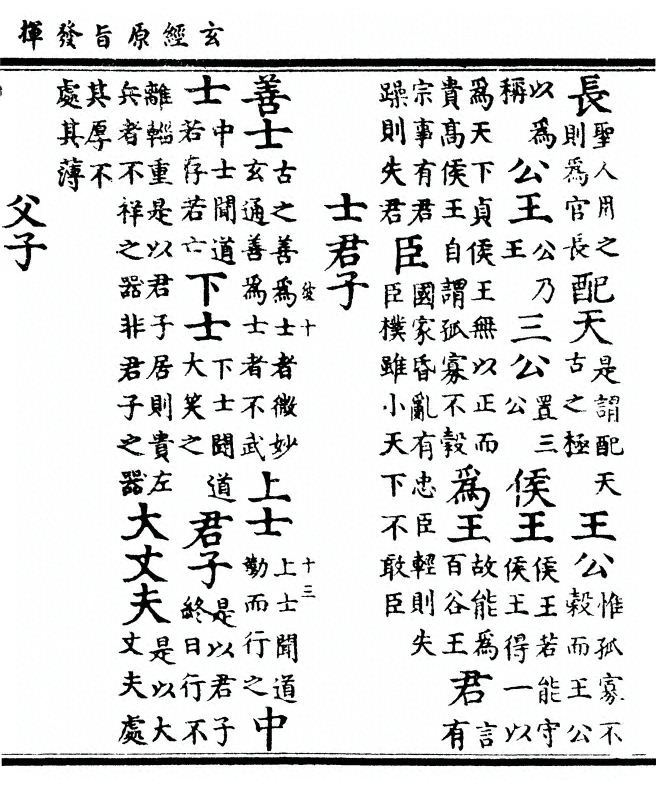 玄經原旨發揮
長聖人用之則爲官長配天是謂配天古之極王公惟孤寡不穀而王公
以爲稱公王公乃王三公置三公侯王侯王若能守侯王得一以
爲天下貞侯王無以正而貴髙侯王自謂孤寡不穀爲王故能爲百谷王君言有
宗事有君躁則失君臣國家昏亂有忠臣輕則失臣樸雖小天下不敢臣
士君子
十
十三
善士古之善爲士者微妙玄通善爲士者不武上士上士聞道勤而行之中
士中士聞道若存若亡下士下士聞道大笑之君子是以君子終日行不
離輜重是以君子居則貴左兵者不祥之器非君子之器大丈夫是以大丈夫處
其厚不處其薄
父子